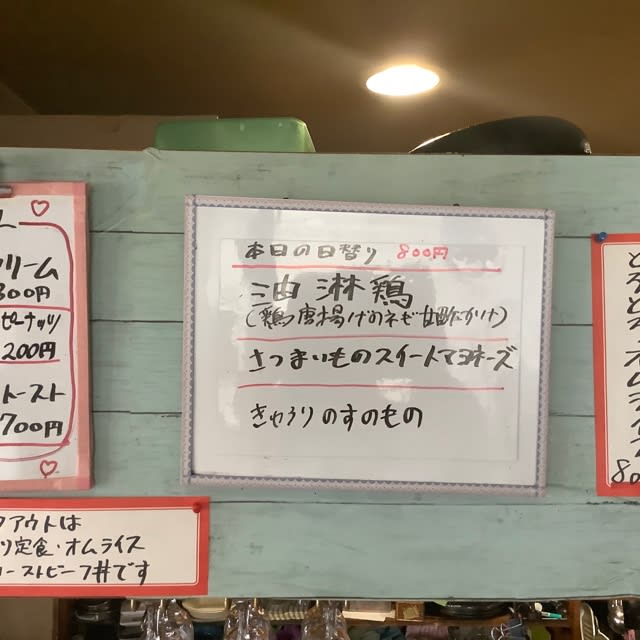 クリーム
300円
ピーナッツ
200円
トースト
700円
本日の日替り 800円
油淋鶏
(鶏唐揚げのネギ甘酢だかけ)
さつまいものスイートマヨネーズ
きゅうりのすのもの
とろとろオムライス
クアウトは
り定食・オムライス
ローストビーフ丼です